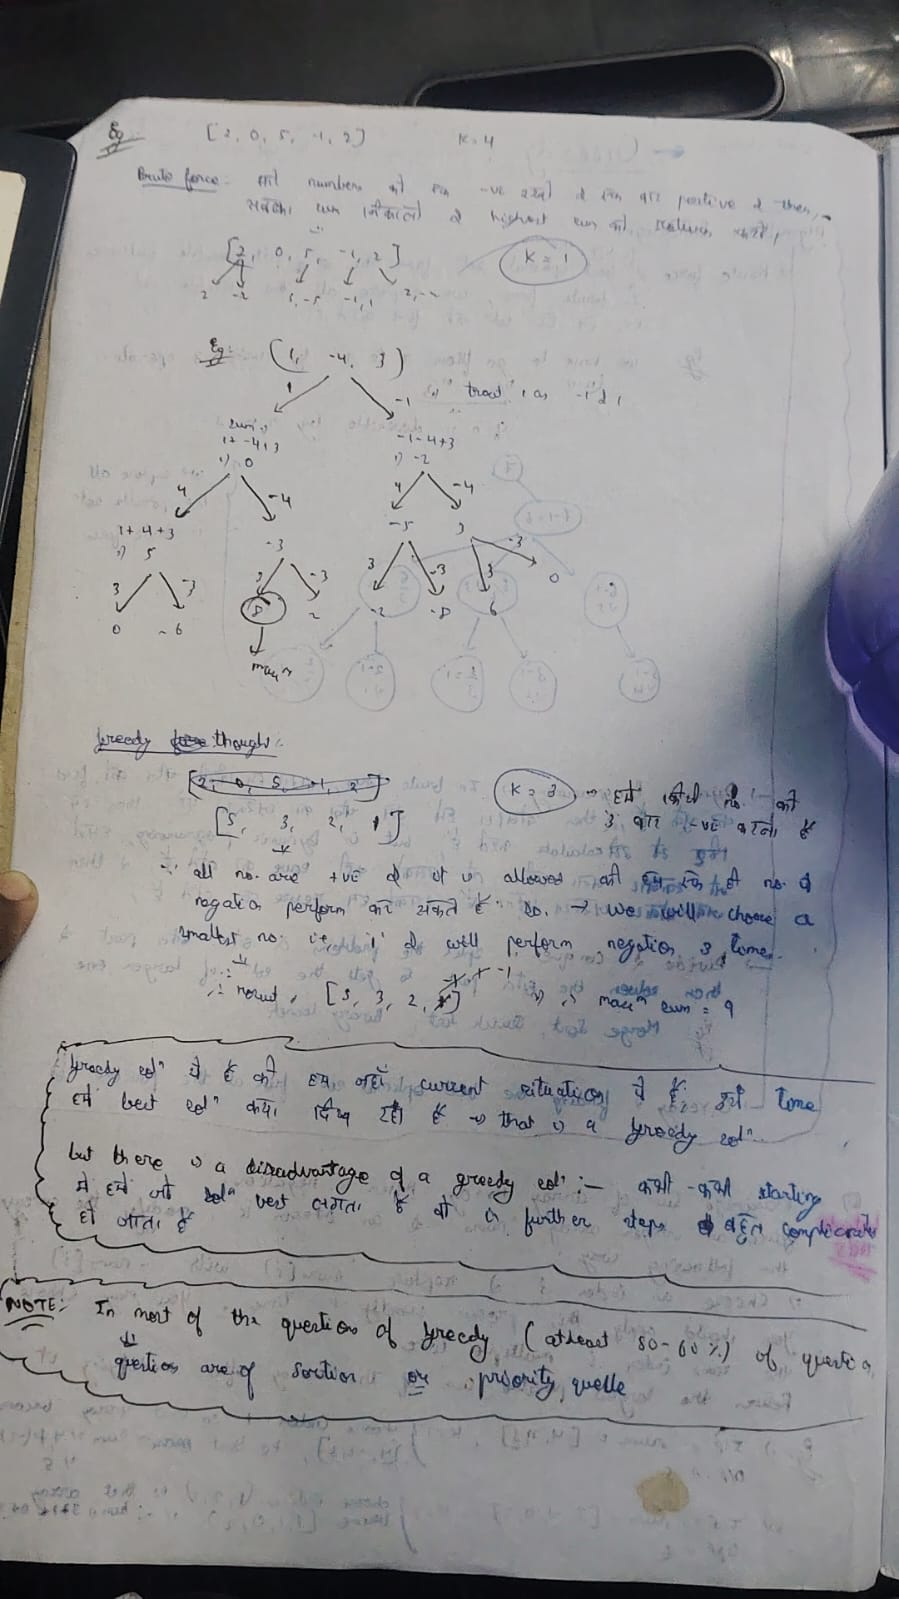 Eg
[2, 0, 5, -1, 2] K=4
Brute force: सारे numbers को एक -ve रखो & एक बार positive & then,
सबका sum निकालो & highest sum को return करो,
[2, 0, 5, -1, 2] K = 1
2 -2 5, -5 -1, 1 2, --
Eg: (1, -4, 3)
1 -1 treat 1 as -1 & 1
sum =
1+-4+3 -1-4+3
0 -2
4 -4 4 -4
1+4+3 -5
5 -3
3 -3 3 -3 3 -3 3 -3
0 -6 8 2 -2 -8 6 0
max^n
Greedy thought:
[2, 0, 5, -1, 2] K = 3 → हमें किसी no. को
[5, 3, 2, 1] 3 बार -ve करना है
∵ all no. are +ve & it is allowed की हम एक ही no. पे
negation perform कर सकते है so, → we will choose a
smallest no. i.e., '1' & will perform negation 3 time.
∴ [5, 3, 2, ] -1 max^m sum = 9
Greedy sol^n ये है की हम जहाँ current situation में हैं, उसी time
हमें best sol^n क्या दिख रहा है → that is a greedy sol^n.
but there is a disadvantage of a greedy sol^n :- कभी-कभी starting
में हमें जो sol^n best लगता है वो in further steps बहुत complicated
हो जाता है
NOTE: In most of the question of greedy (atleast 50-60%) of question
question are of sortion or priority quelle